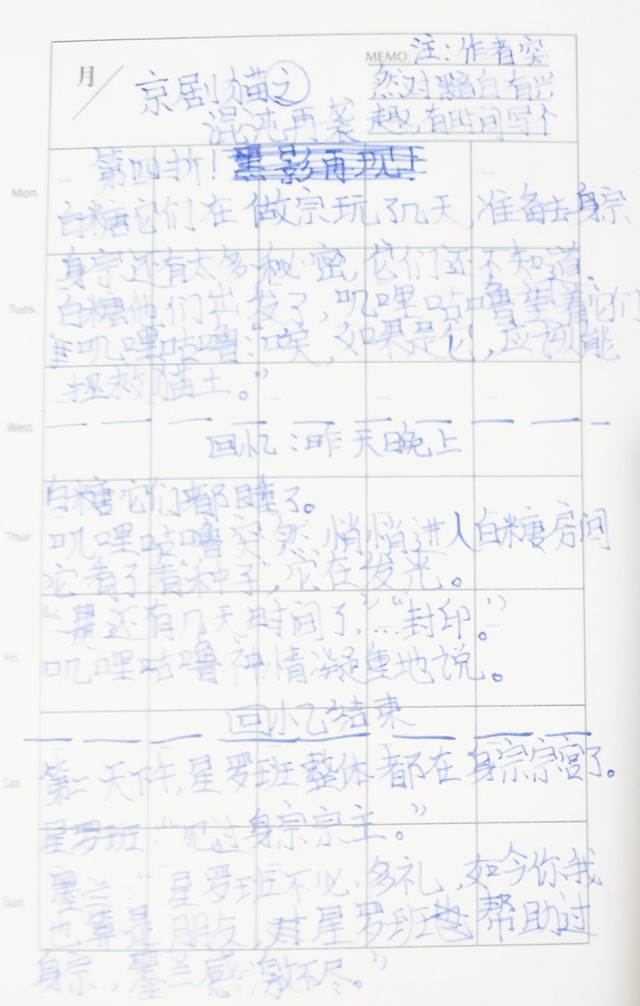 月
MEMO: 注：作者突
京剧猫之
然对 有兴
混沌再袭
趣，有时间写个
第四折！黑影再现！
Mon.
白糖它们在做宗玩了几天，准备去身宗
身宗还有太多秘密，它们还不知道。
Tues.
白糖他们出发了，叽哩咕噜望着它们
叽哩咕噜：“唉，如果是它，应该能
拯救猫土。”
Wed.
回忆：昨天晚上
白糖它们都睡了。
Thur.
叽哩咕噜突然悄悄进入白糖房间
它看了看“种子”，它在发光。
“是还有几天时间了，…“封印。”
Fri.
叽哩咕噜神情凝重地说。
回忆结束
第二天下午，星罗班整体都在身宗宗宫了。
Sat.
星罗班：“见过身宗宗主。”
墨兰：“星罗班不必多礼，如今你我
Sun.
也算是朋友，对星罗班 帮助过
身宗，墨兰感激不尽。”